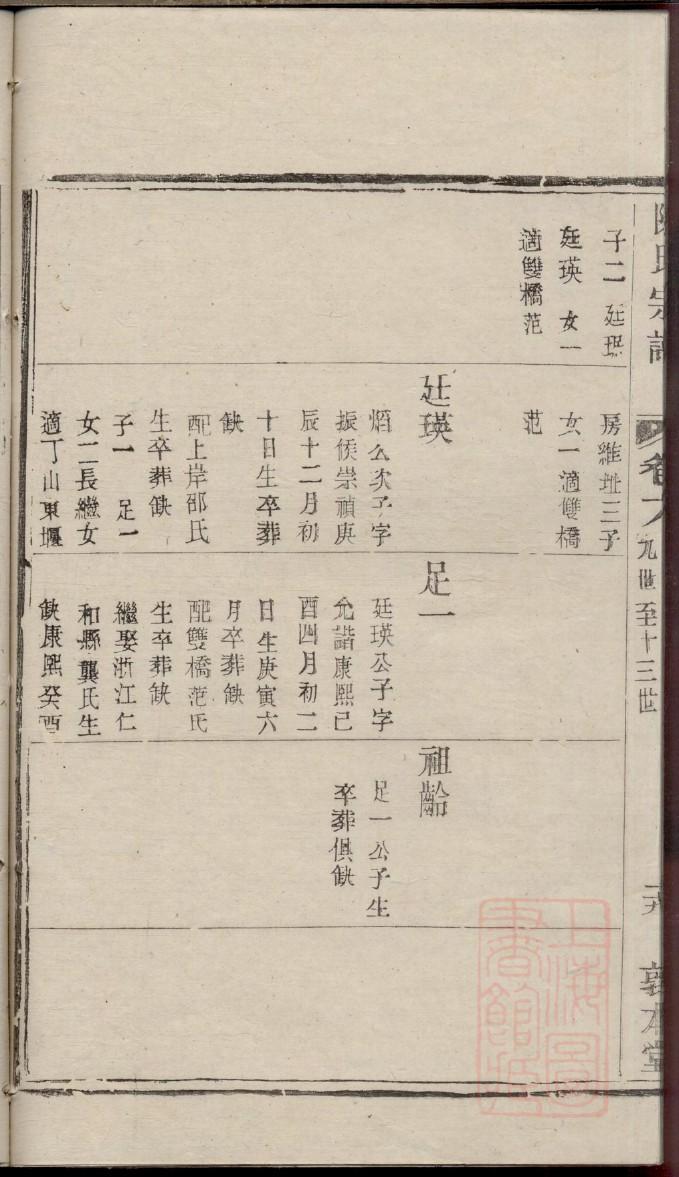 陳氏宗譜
卷九
九世至十三世
敦本堂
子二 廷珉
廷瑛 女一
適雙橋范
房維址三子
女一適雙橋
范
廷瑛
焰公次子字
振侯崇禎庚
辰十二月初
十日生卒葬
缺
配上岸邵氏
生卒葬缺
子一 足一
女二長繼女
適丁山東堰
足一
廷瑛公子字
允諧康熙己
酉四月初二
日生庚寅六
月卒葬缺
配雙橋范氏
生卒葬缺
繼娶浙江仁
和縣龔氏生
缺康熙癸酉
祖齡
足一公子生
卒葬俱缺
上海圖書館藏